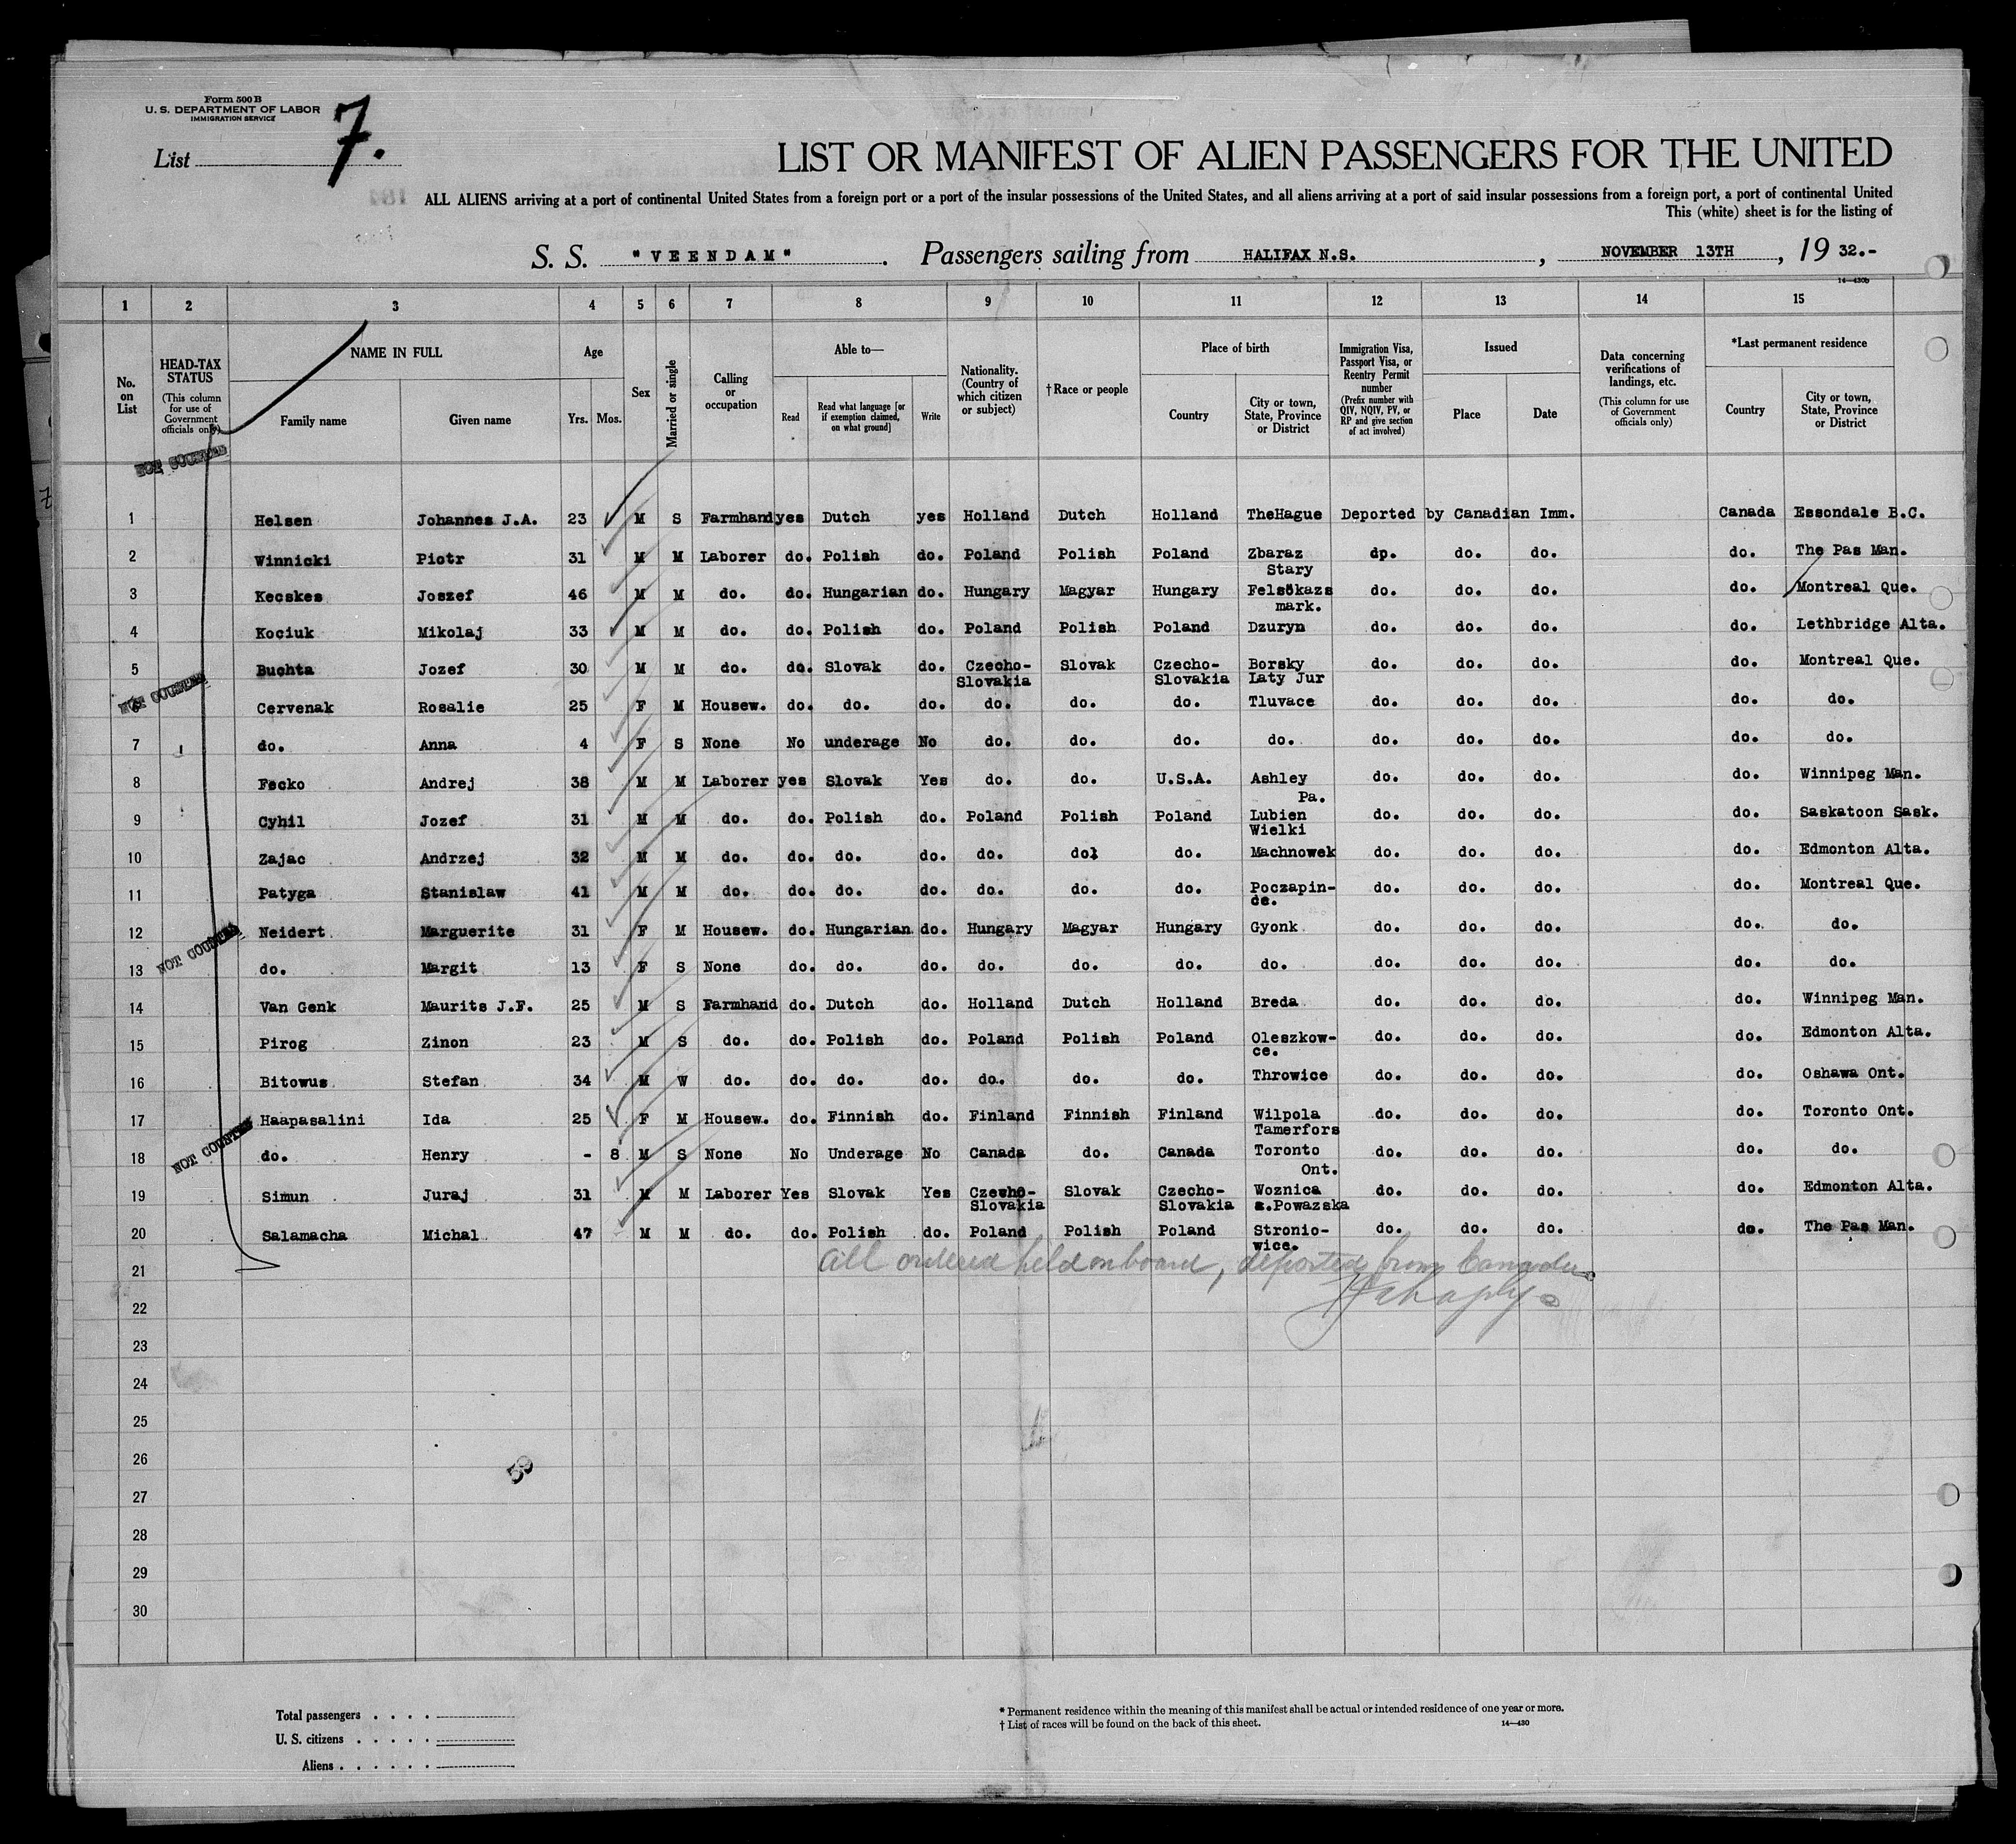 Form 500 B
U. S. DEPARTMENT OF LABOR
IMMIGRATION SERVICE
List 7.
LIST OR MANIFEST OF ALIEN PASSENGERS FOR THE UNITED
ALL ALIENS arriving at a port of continental United States from a foreign port or a port of the insular possessions of the United States, and all aliens arriving at a port of said insular possessions from a foreign port, a port of continental United
This (white) sheet is for the listing of
S. S. "VEENDAM". Passengers sailing from HALIFAX N.S., NOVEMBER 13TH, 19 32.-
14—430b
1 2 3 4 5 6 7 8 9 10 11 12 13 14 15
No. on List
HEAD-TAX STATUS (This column for use of Government officials only)
NAME IN FULL Family name Given name
Age Yrs. Mos.
Sex
Married or single
Calling or occupation
Able to— Read Read what language [or if exemption claimed, on what ground] Write
Nationality. (Country of which citizen or subject)
† Race or people
Place of birth Country City or town, State, Province or District
Immigration Visa, Passport Visa, or Reentry Permit number (Prefix number with QIV, NQIV, PV, or RP and give section of act involved)
Issued Place Date
Data concerning verifications of landings, etc. (This column for use of Government officials only)
*Last permanent residence Country City or town, State, Province or District
NOT COUNTED
1 Helsen Johannes J.A. 23 M S Farmhand yes Dutch yes Holland Dutch Holland TheHague Deported by Canadian Imm. Canada Essondale B.C.
2 Winnicki Piotr 31 M M Laborer do. Polish do. Poland Polish Poland Zbaraz Stary dp. do. do. do. The Pas Man.
3 Kecskes Joszef 46 M M do. do. Hungarian do. Hungary Magyar Hungary Felsökazs mark. do. do. do. do. Montreal Que.
4 Kociuk Mikolaj 33 M M do. do. Polish do. Poland Polish Poland Dzuryn do. do. do. do. Lethbridge Alta.
5 Buchta Jozef 30 M M do. do. Slovak do. Czecho-Slovakia Slovak Czecho-Slovakia Borsky Laty Jur do. do. do. do. Montreal Que.
NOT COUNTED
6 Cervenak Rosalie 25 F M Housew. do. do. do. do. do. do. Tluvace do. do. do. do. do.
7 do. Anna 4 F S None No underage No do. do. do. do. do. do. do. do. do.
8 Fecko Andrej 38 M M Laborer yes Slovak Yes do. do. U.S.A. Ashley Pa. do. do. do. do. Winnipeg Man.
9 Cyhil Jozef 31 M M do. do. Polish do. Poland Polish Poland Lubien Wielki do. do. do. do. Saskatoon Sask.
10 Zajac Andrzej 32 M M do. do. do. do. do. do. do. Machnowek do. do. do. do. Edmonton Alta.
11 Patyga Stanislaw 41 M M do. do. do. do. do. do. do. Poczapin-ce. do. do. do. do. Montreal Que.
NOT COUNTED
12 Neidert Marguerite 31 F M Housew. do. Hungarian do. Hungary Magyar Hungary Gyonk do. do. do. do. do.
13 do. Margit 13 F S None do. do. do. do. do. do. do. do. do. do. do. do.
14 Van Genk Maurits J.F. 25 M S Farmhand do. Dutch do. Holland Dutch Holland Breda do. do. do. do. Winnipeg Man.
15 Pirog Zinon 23 M S do. do. Polish do. Poland Polish Poland Oleszkow-ce. do. do. do. do. Edmonton Alta.
16 Bitowus Stefan 34 M W do. do. do. do. do. do. do. Throwice do. do. do. do. Oshawa Ont.
17 Haapasalini Ida 25 F M Housew. do. Finnish do. Finland Finnish Finland Wilpola Tamerfors do. do. do. do. Toronto Ont.
NOT COUNTED
18 do. Henry - 8 M S None No Underage No Canada do. Canada Toronto Ont. do. do. do. do. do.
19 Simun Juraj 31 M M Laborer Yes Slovak Yes Czecho-Slovakia Slovak Czecho-Slovakia Woznica z.Powazska do. do. do. do. Edmonton Alta.
20 Salamacha Michal 47 M M do. do. Polish do. Poland Polish Poland Stronio-wice. do. do. do. do. The Pas Man.
All ordered held on board, deported from Canada
21
22
23
24
25
26
27
28
29
30
Total passengers
U. S. citizens
Aliens
* Permanent residence within the meaning of this manifest shall be actual or intended residence of one year or more.
† List of races will be found on the back of this sheet. 14—430